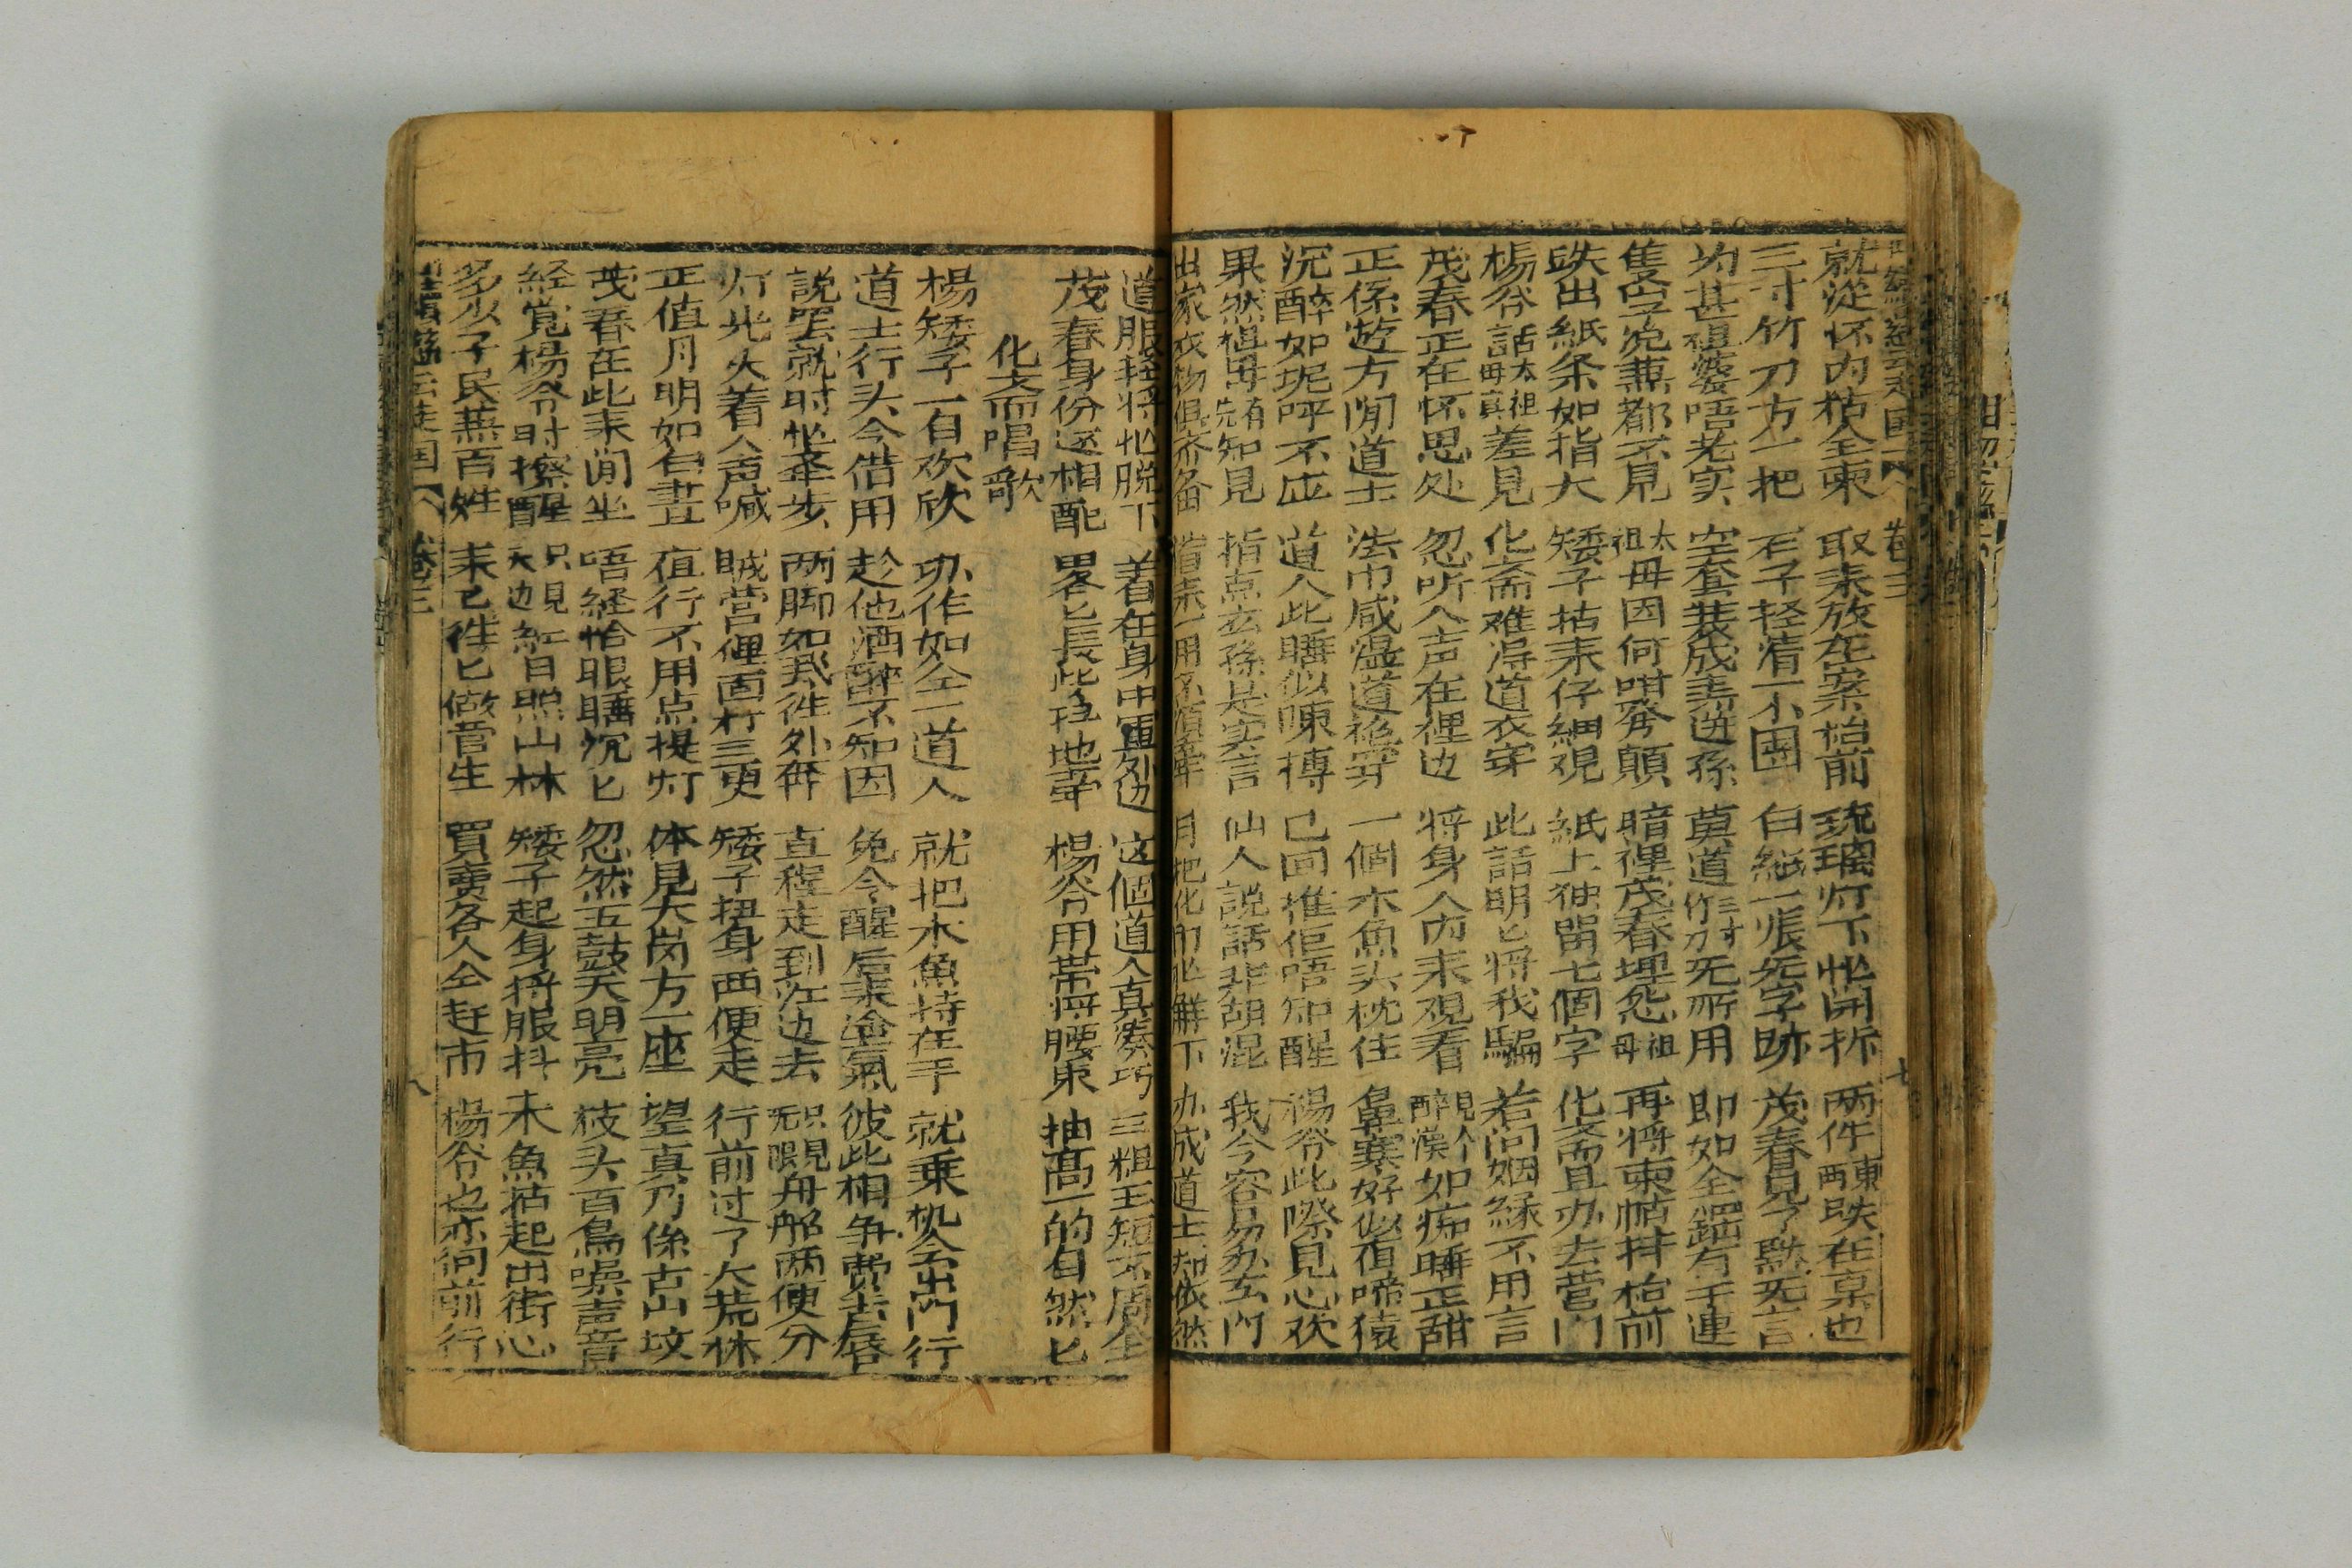 就從怀内枯全柬 取来放在案枱前 琉璃灯下忙開拆 两件柬两跌在棹也
三寸竹刀方一把 石子轻清一小囯 白紙一張旡字跡 茂春見了默旡言
均甚祖婆唔老实 空套装成弄逰孫 莫道三寸竹刀旡所用 即如全 有千連
隻字况兼都不見 太祖母因何咁 顛 暗裡茂春埋怨祖母 再将柬帖抖枱前
跌出紙条如指大 矮子拈来仔細观 紙上独留七個字 化斎且办去营门
楊爷話太祖母真差見 化斎难淂道衣穿 此話明匕将我騙 若问姻緣不用言
茂春正在怀思处 忽听人声在裡边 将身入内来观看 見个醉漢如痴睡正甜
正係逰方閒道士 法巾咸湿道袍穿 一個木魚头枕住 鼻 好似值啼猿
沉醉如坭呼不应 道人此睡似陳摶 已回推佢唔知醒 楊爷此際見心欢
果然祖母有先知見 指点玄孫是实言 仙人説話非胡混 我今容易办玄门
出家衣物俱齐备 一用不 月把化 忙觧下 办成道士知依然
道服 将忙脱下 着在身中 处边 这個道人真凑巧 三粗五短不周全
茂春身份这相配 畧匕長些 地 楊爷用带将腰束 抽高一的自然匕
化斎唱歌
楊矮子一自欢欣 办作如仝一道人 就把木魚持在手 就乗机会出门行
道士行头今借用 趁他酒醉不知因 免令醒后来 氣 彼此相争费舌唇
説罢就时忙 步 两脚如飛徃外奔 直程走到江边去 只見旡限舟船两便分
灯光火着人声喊 賊营俚面打三更 矮子扭身西便走 行前过了大荒林
正值月明如白昼 值行不用点提灯 体見大崗方一座 望真乃係古山坟
茂春在此来閒坐 唔経恰眼睡沉匕 忽然五鼓天明亮 枝头百鳥噪声音
経覚楊爷时擦醒 只見天边紅日照山林 矮子起身将服抖 木魚拈起出街心
多少子民兼百姓 来已徃匕做营生 買賣各人仝赶市 楊爷也亦向前行
卷三
八